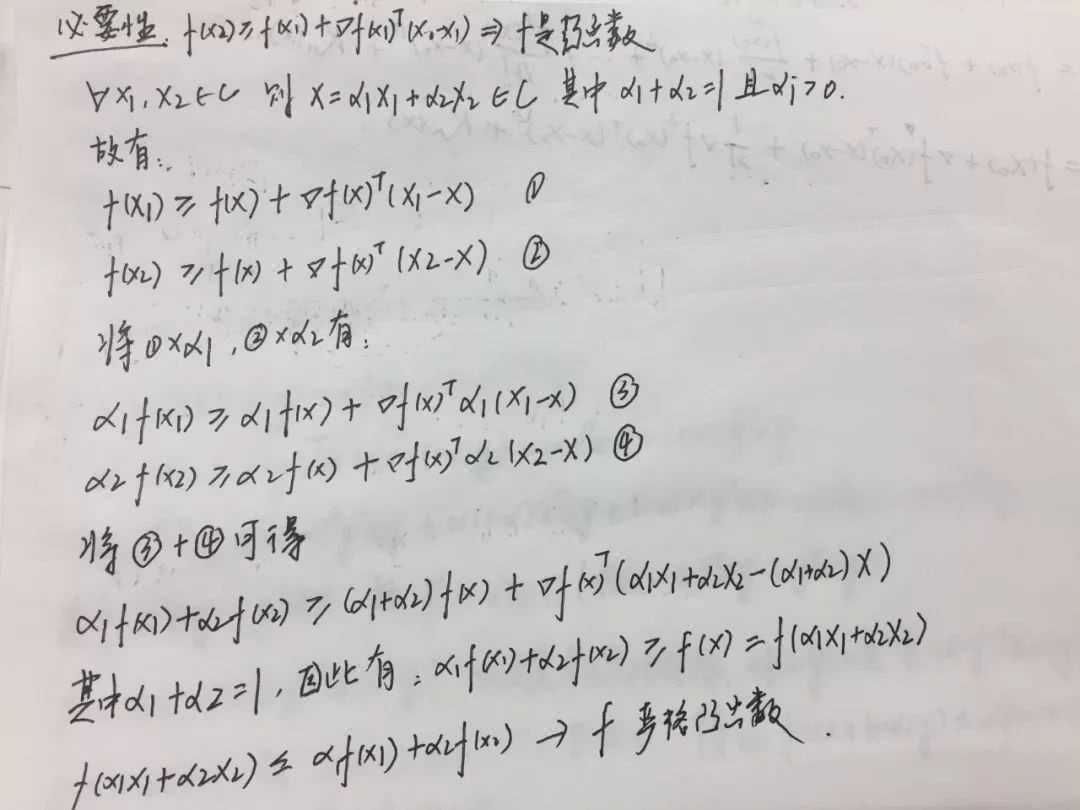 必要性. f(x2) ≥ f(x1) + ∇f(x1)ᵀ(x2-x1) ⇒ f是凸函数
∀ x1, x2 ∈ C 则 X = α1X1 + α2X2 ∈ C 其中 α1 + α2 = 1 且 αi > 0.
故有:
f(x1) ≥ f(x) + ∇f(x)ᵀ(x1-x) ①
f(x2) ≥ f(x) + ∇f(x)ᵀ(x2-x) ②
将①×α1, ②×α2有:
α1f(x1) ≥ α1f(x) + ∇f(x)ᵀα1(x1-x) ③
α2f(x2) ≥ α2f(x) + ∇f(x)ᵀα2(x2-x) ④
将③+④可得
α1f(x1)+α2f(x2) ≥ (α1+α2)f(x) + ∇f(x)ᵀ(α1X1+α2X2-(α1+α2)X)
其中α1+α2=1, 因此有: α1f(x1)+α2f(x2) ≥ f(x) = f(α1X1+α2X2)
f(α1X1+α2X2) ≤ α1f(x1)+α2f(x2) → f 严格凸函数.